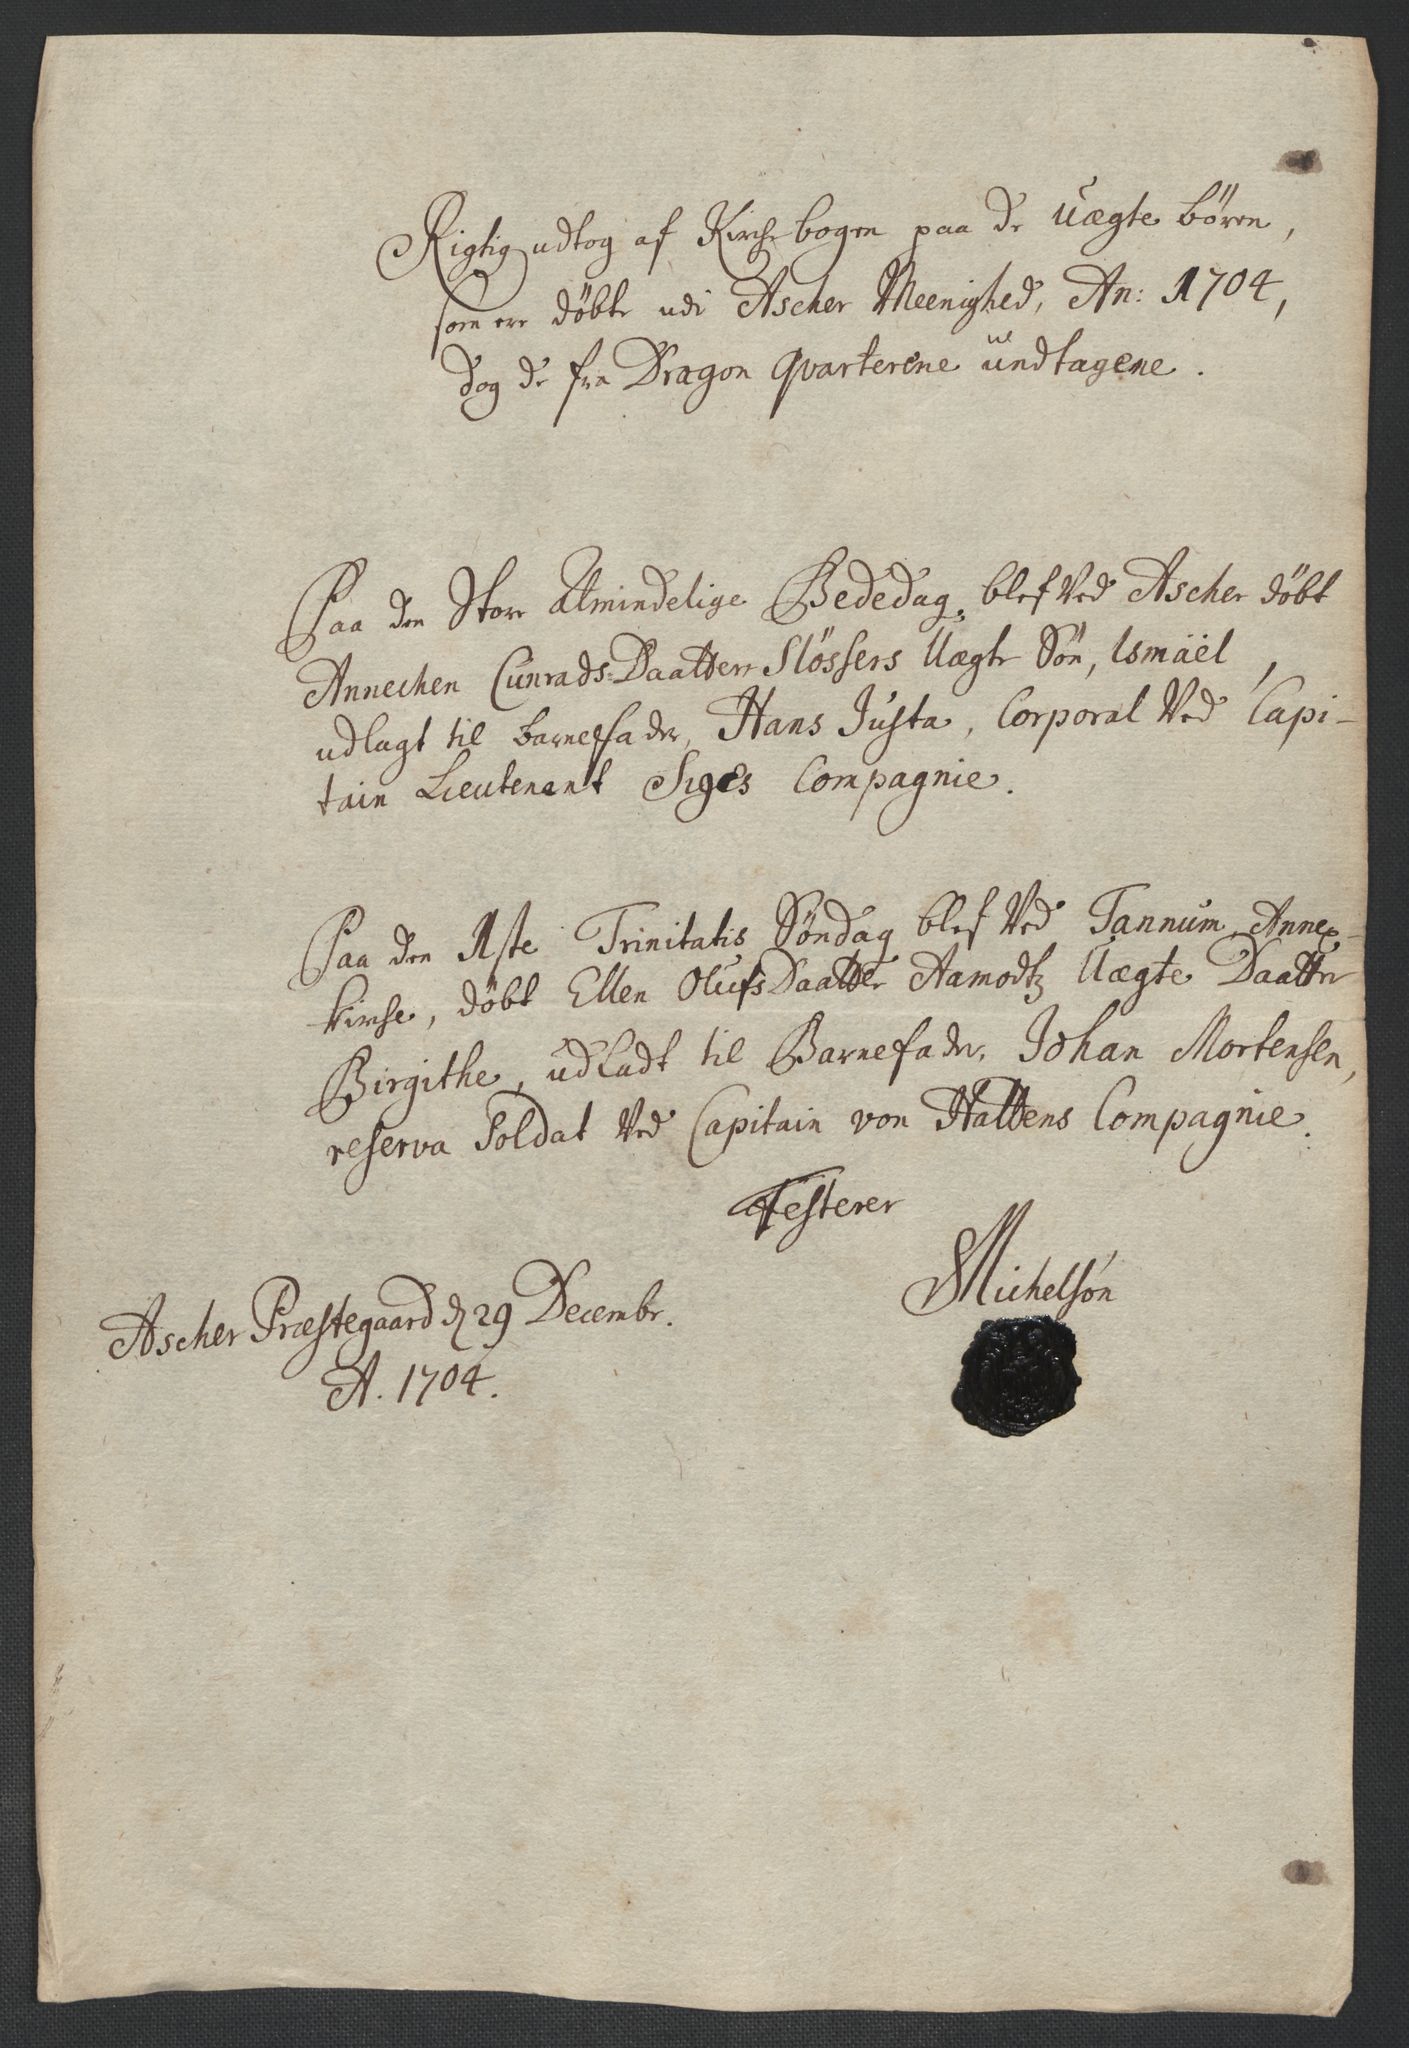 Rigtig udtog af Kirchebogen paa de Uægte börn,
som ere döbte udi Ascher Meenighed, An: 1704,
dog de fra Dragon Qvarterene undtagene.
Paa den Store Almindelige Bededag, blef Ved Ascher döbt
Annechen Cunrads-Daatters Slössers Uægte Sön, Ismäel,
udlagt til barnefader, Hans Justa, Corporal Ved Capi-
tain Lieutenant Siges Compagnie.
Paa den 1ste Trinitatis Söndag blef Ved Tannum Annex-
kirche, döbt Ellen OlufsDaatter Aamodtz Uægte Daatter
Birgithe, udladt til Barnefader, Johan Mortensen,
reserva Soldat Ved Capitain von Hattens Compagnie.
Testerer
Michelsön
Ascher Præstegaard d 29 Decembr.
A. 1704.